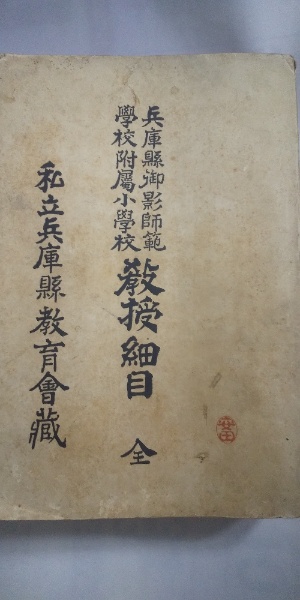 兵庫縣御影師範
學校附屬小學校
教授細目 全
私立兵庫縣教育會藏